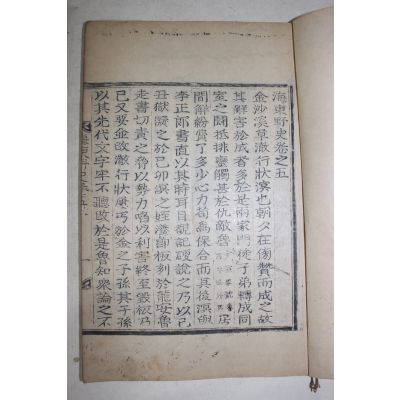 海東野史卷之五
金沙溪草澈行狀溟也朝夕在傍贊而成之故
其辭害於成者多於是兩家門徒子弟轉成同
室之鬪抵排蠻觸甚於仇敵魯
間解紛費了多少心力苟爲保合而其後溟卽
李正郞書直以其時耳目覩記硬說之乃以己
丑獄擬之於己卯溟之姪潘
走書切責之脅以勢力啗以利害終至毁板乃
已又要金改澈行狀屢丐於金之子孫其子孫
以其先代文字牢不聽改於是魯知衆論之不